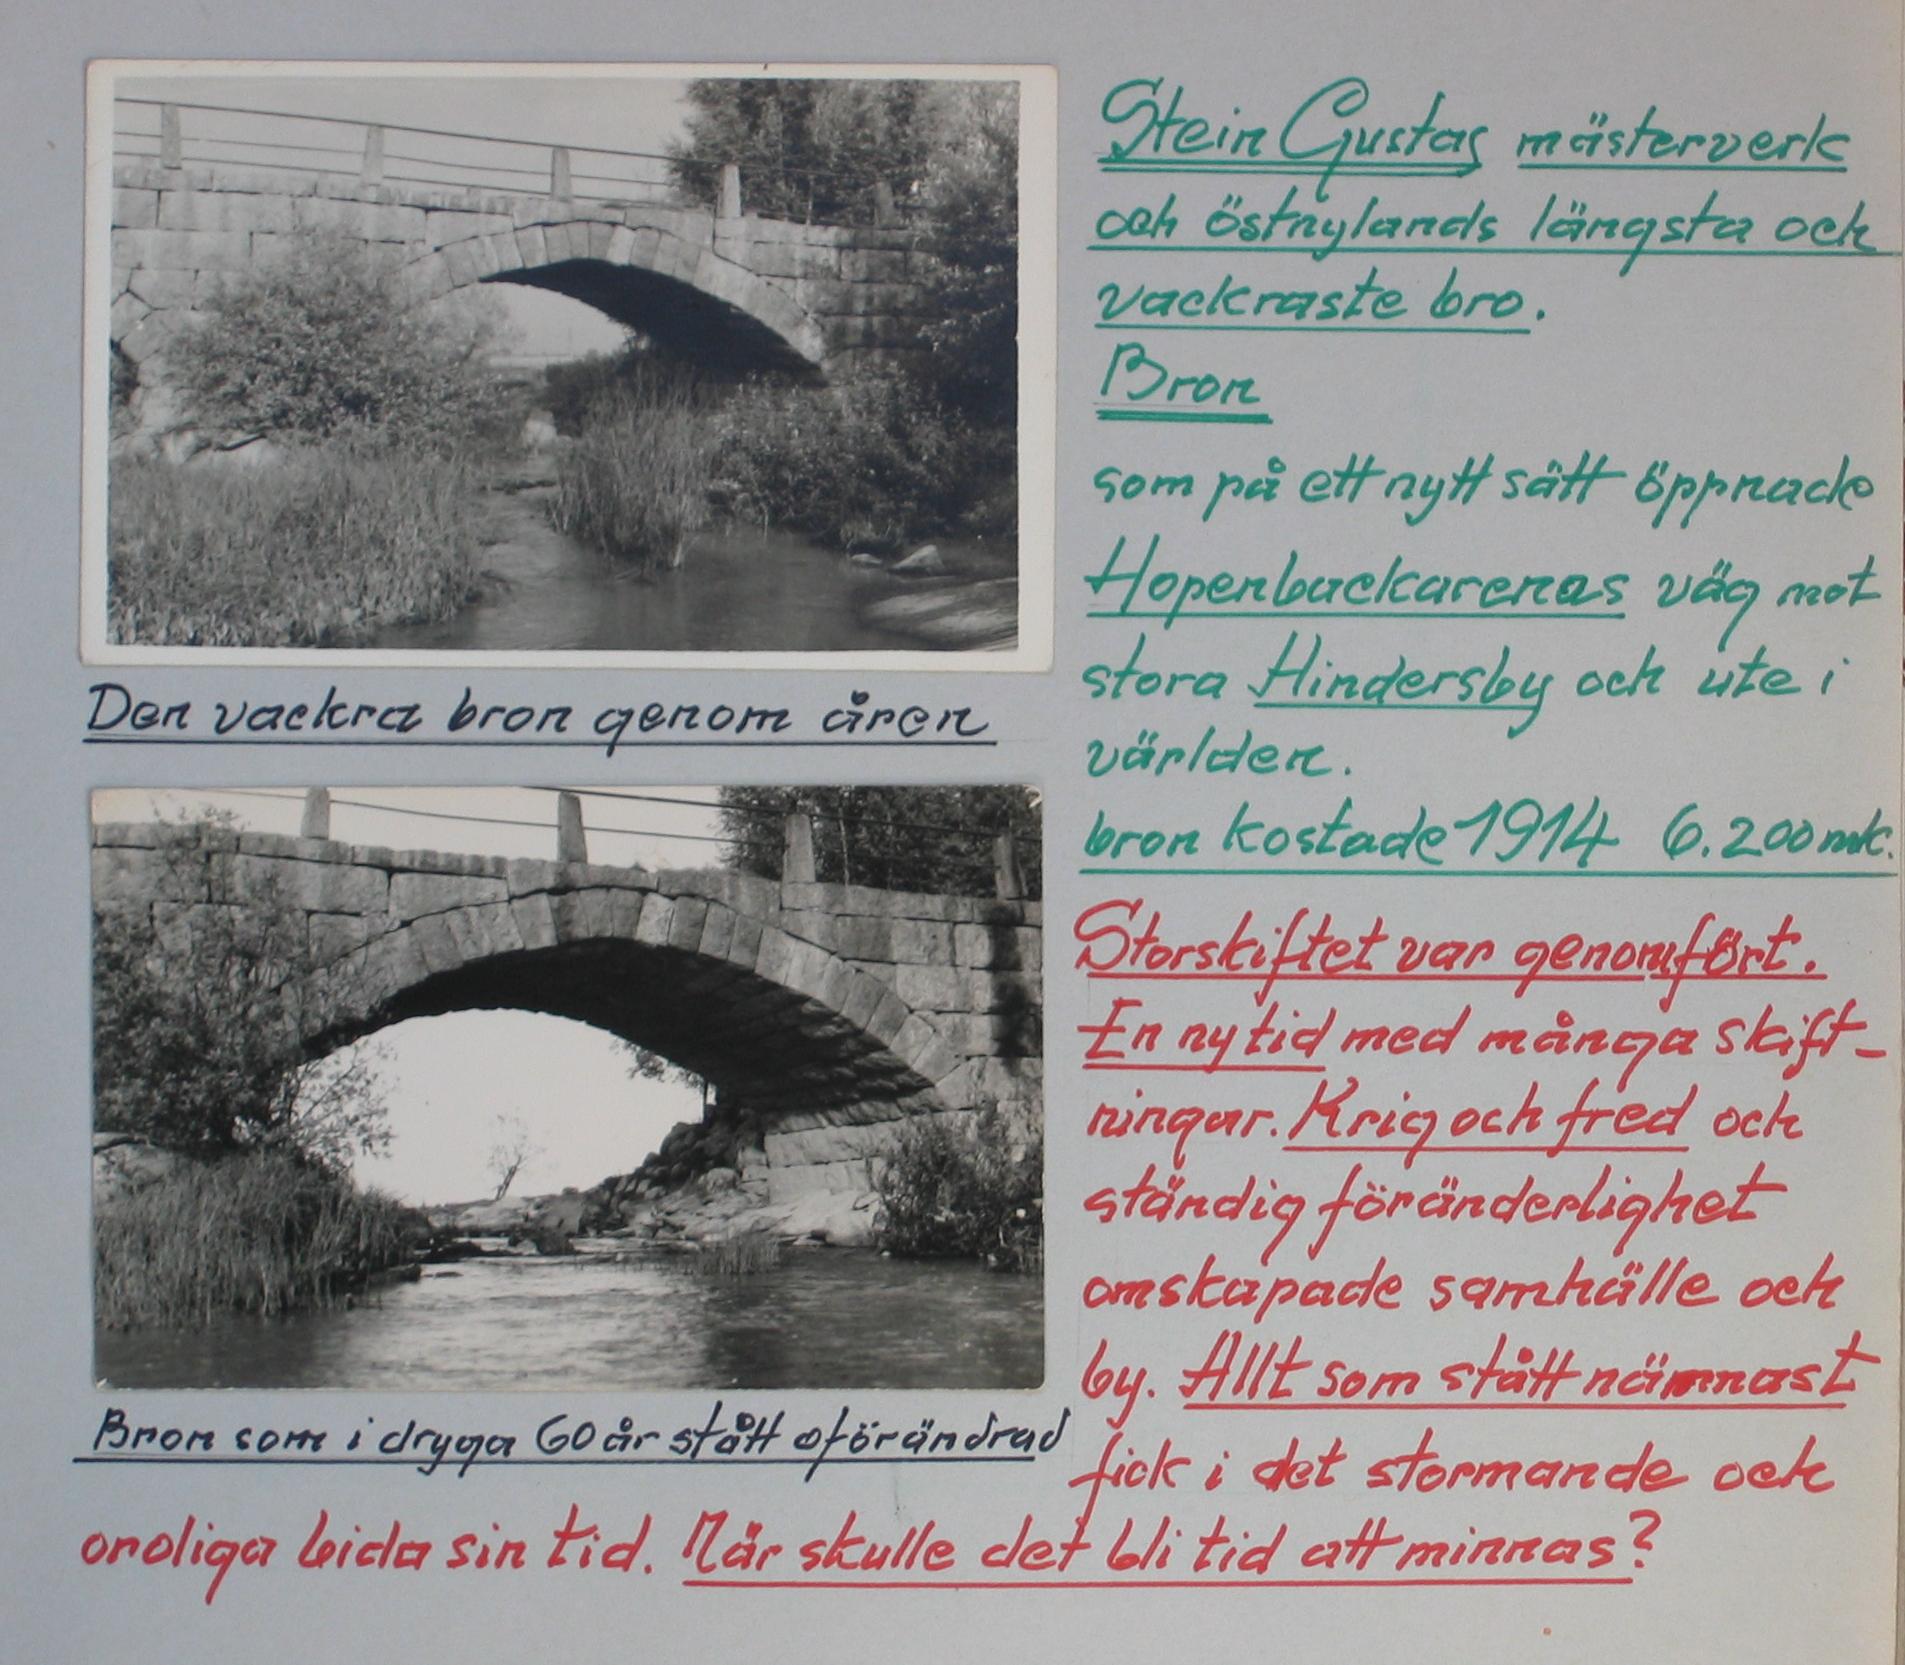 Den vackra bron genom åren
Bron som i dryga 60 år stått oförändrad
Stein Gustas mästerverk
och östnylands längsta och
vackraste bro.
Bron
som på ett nytt sätt öppnade
Hopenbackarenas väg mot
stora Hindersby och ute i
världen.
bron kostade 1914 6.200 mk.
Storskiftet var genomfört.
En ny tid med många skift-
ningar. Krig och fred och
ständig föränderlighet
omskapade samhälle och
by. Allt som stått nämnast
fick i det stormande och
oroliga bida sin tid. När skulle det bli tid att minnas?